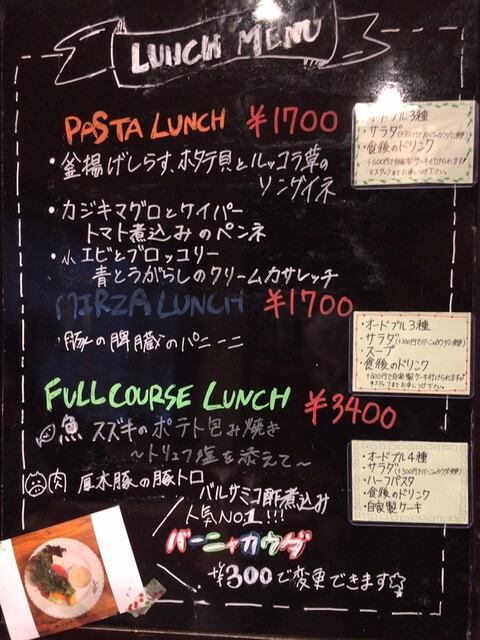 LUNCH MENU
PASTA LUNCH ¥1700
・釜揚げしらす、ホタテ貝とルッコラ草の
リングイネ
・カジキマグロとケイパー
トマト煮込みのペンネ
・小エビとブロッコリー
青とうがらしのクリームカサレッチ
・オードブル3種
・サラダ
・食後のドリンク
+600円で自家製ケーキ付けられます!
*スタッフまでお申しつけ下さい。
MIRZA LUNCH ¥1700
・豚の脾臓のパニーニ
・オードブル3種
・サラダ(+300円でバーニャカウダに変更)
・スープ
・食後のドリンク
+600円で自家製ケーキ付けられます!
*スタッフまでお申しつけ下さい。
FULLCOURSE LUNCH ¥3400
魚 スズキのポテト包み焼き
～トリュフ塩を添えて～
肉 厚木豚の豚トロ
バルサミコ酢煮込み
・オードブル4種
・サラダ(+300円でバーニャカウダに変更)
・ハーフパスタ
・食後のドリンク
・自家製ケーキ
人気NO.1!!!
バーニャカウダ
+¥300で変更できます☆